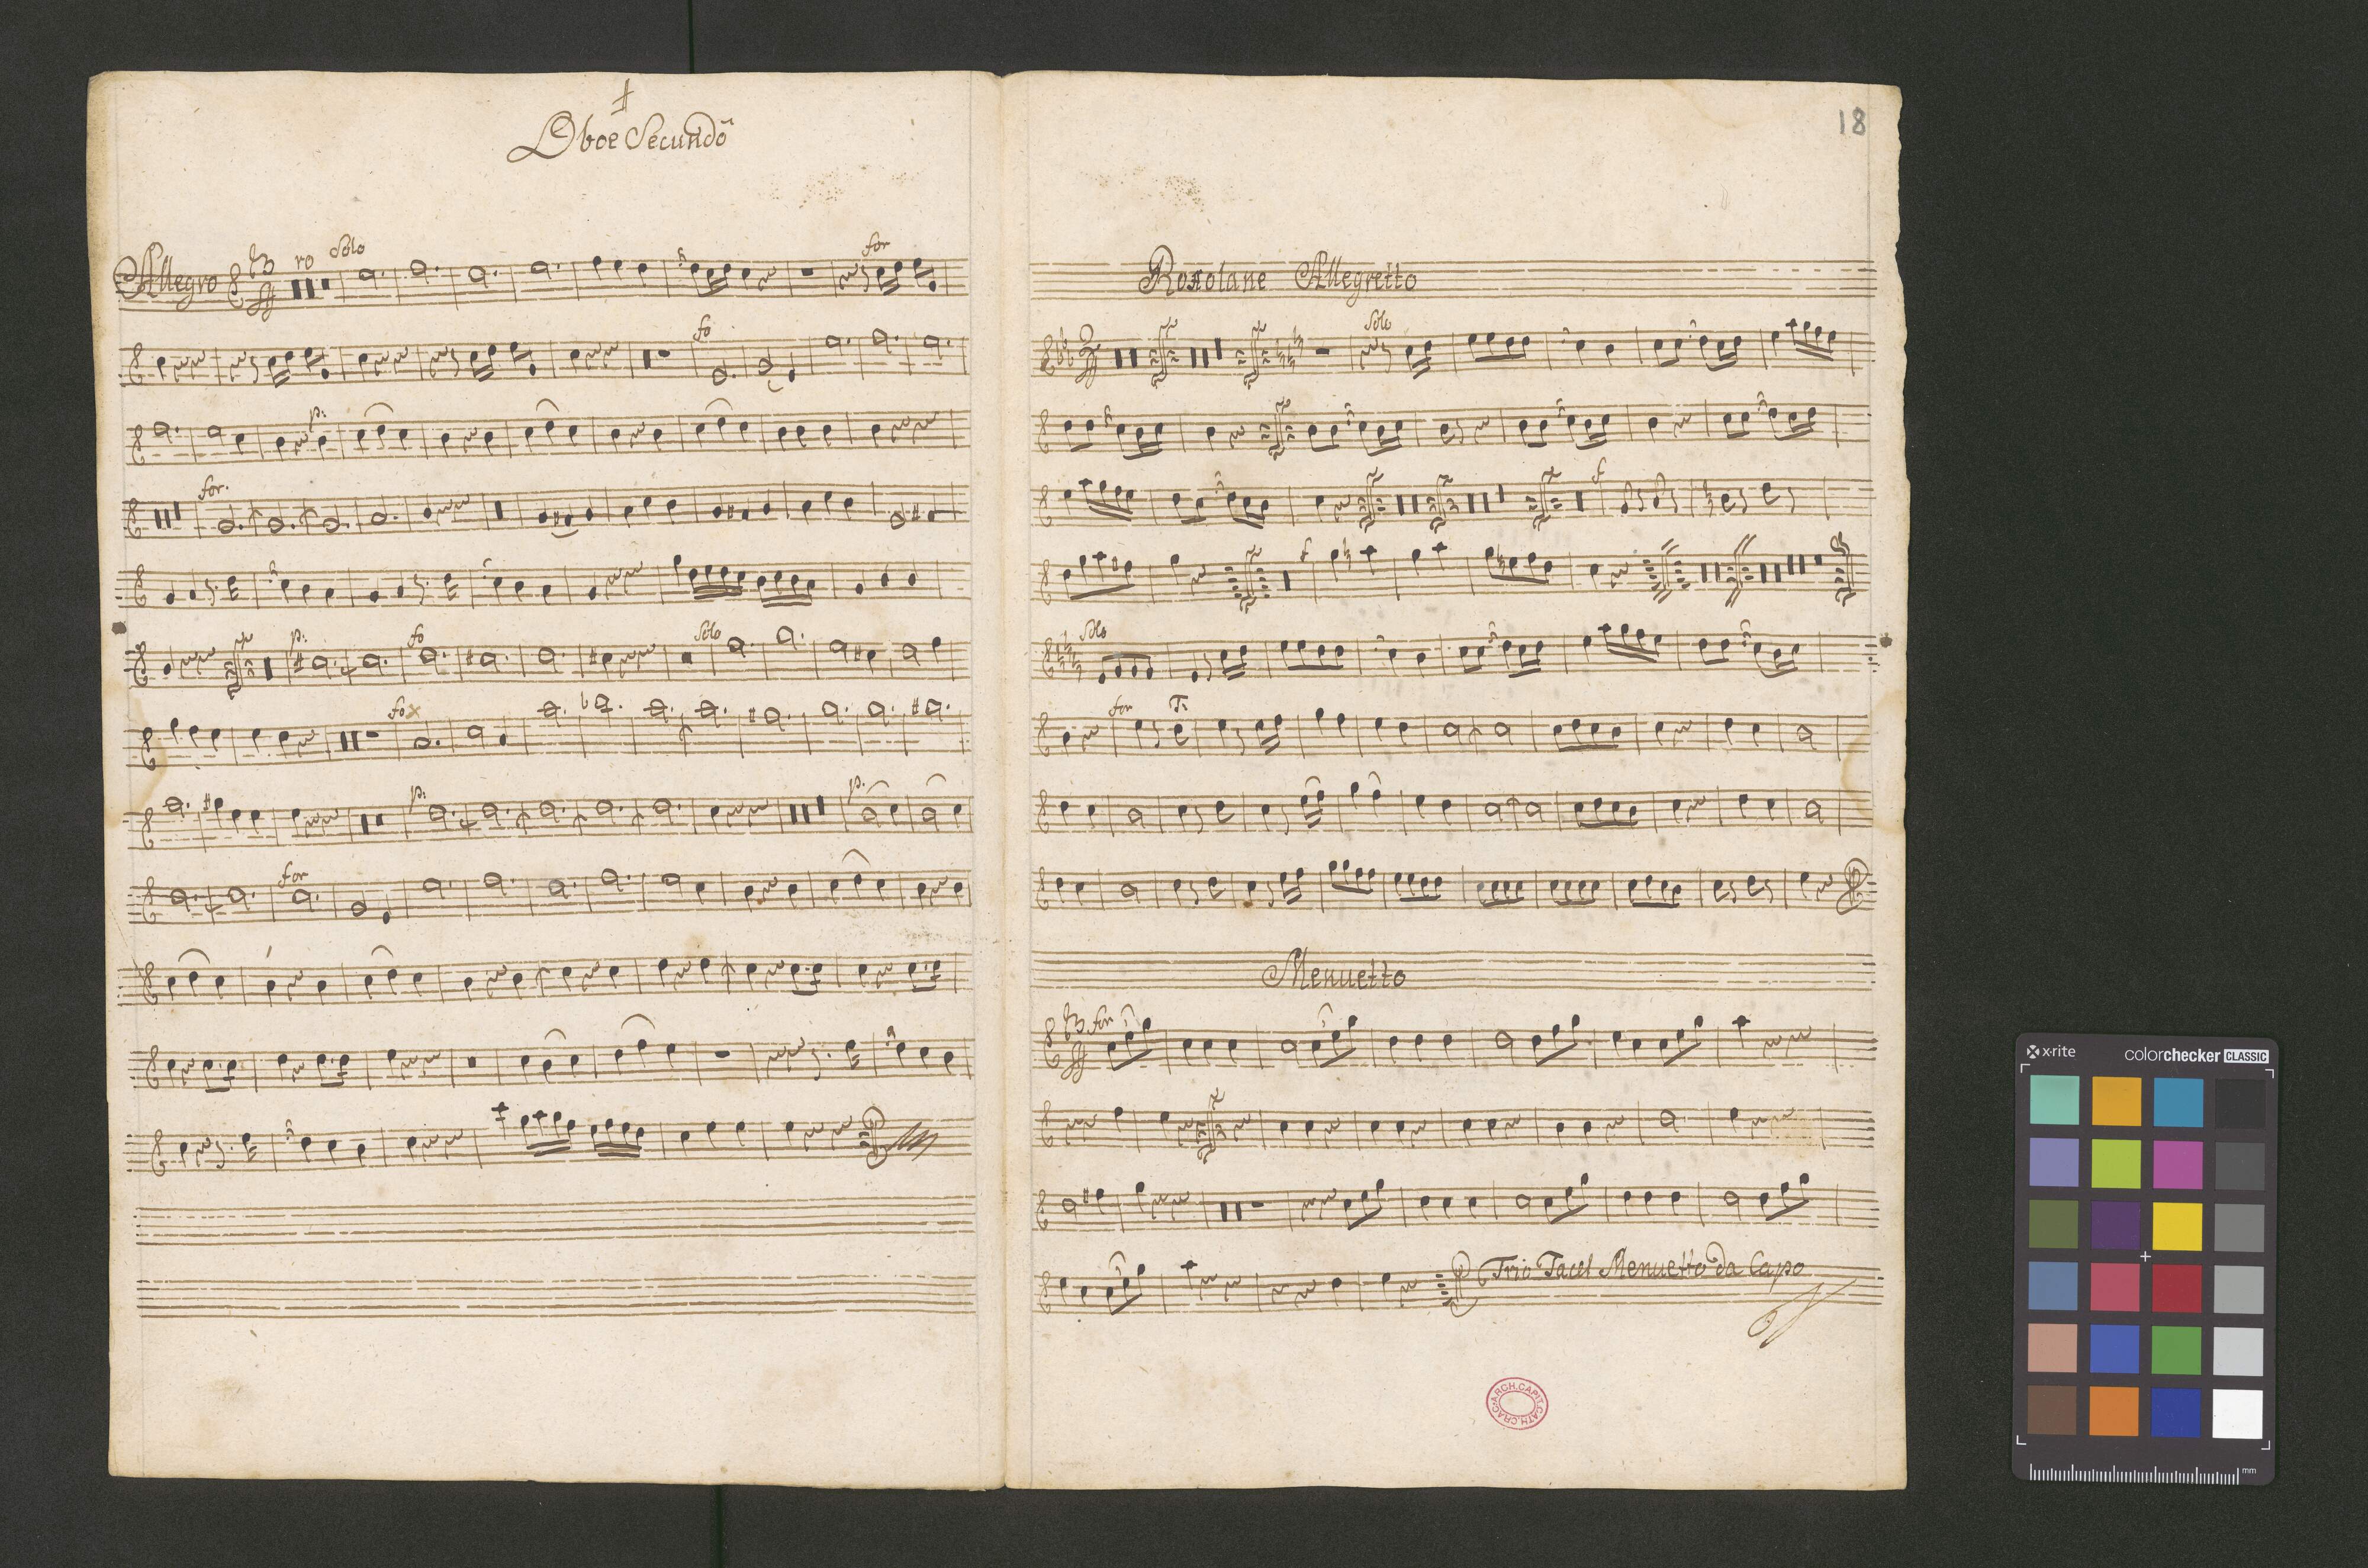 Oboe Secundo
Allegro
10
Solo
for
fo
p:
for.
p:
fo
Solo
fo
p:
p:
for
18
Roxolane Allegretto
Solo
f
f
Solo
for
T:
Menuetto
for
Trio Tacet Menuetto da Capo
ARCH. CAPIT. CATH. CRAC.
x-rite
colorchecker CLASSIC
mm